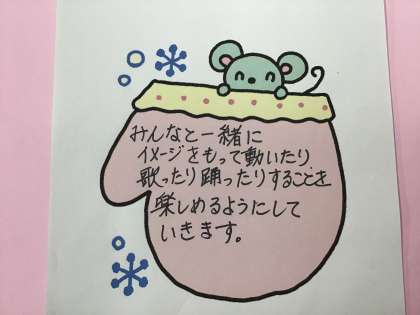 みんなと一緒に
イメージをもって動いたり
歌ったり踊ったりすることを
楽しめるようにして
いきます。